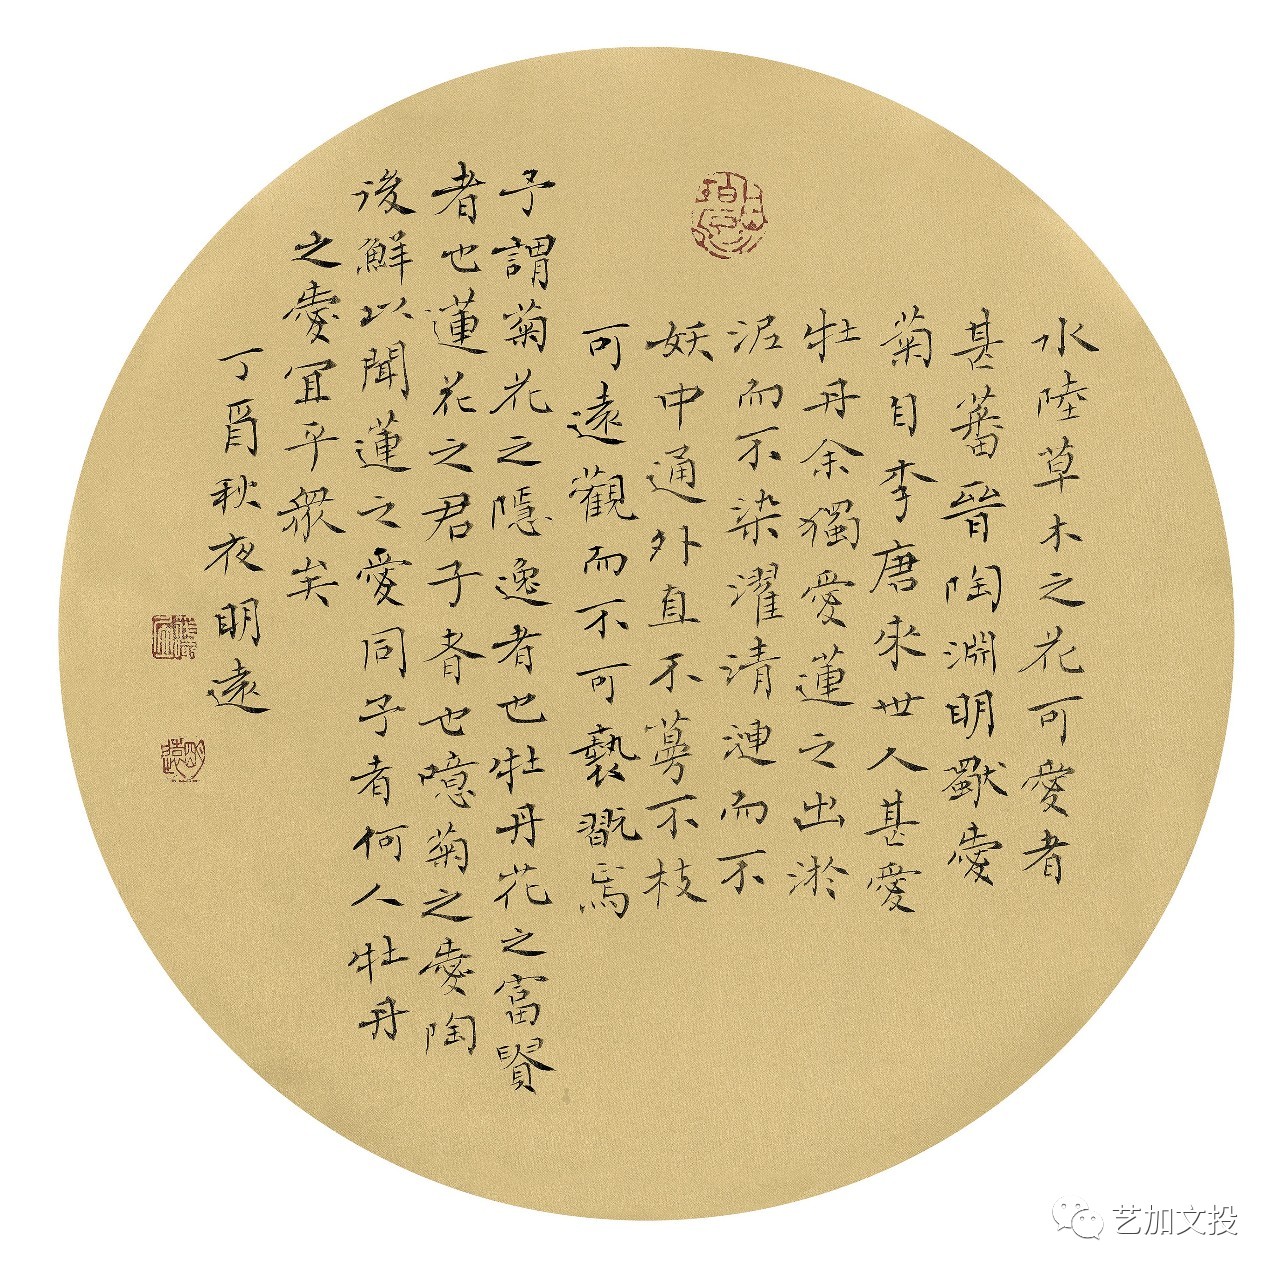 水陸草木之花可愛者
甚蕃晉陶淵明獨愛
菊自李唐來世人甚愛
牡丹余獨愛蓮之出淤
泥而不染濯清漣而不
妖中通外直不蔓不枝
可遠觀而不可褻翫焉
予謂菊花之隱逸者也牡丹花之富貴
者也蓮花之君子者也噫菊之愛陶
後鮮以聞蓮之愛同予者何人牡丹
之愛宜乎眾矣
丁酉秋夜明遠
明遠
艺加文投